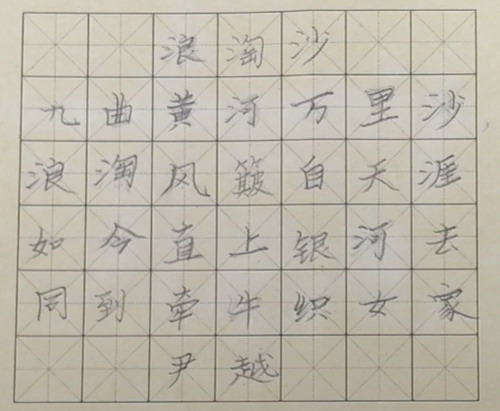 浪淘沙
九曲黄河万里沙
浪淘风簸自天涯
如今直上银河去
同到牵牛织女家
尹越